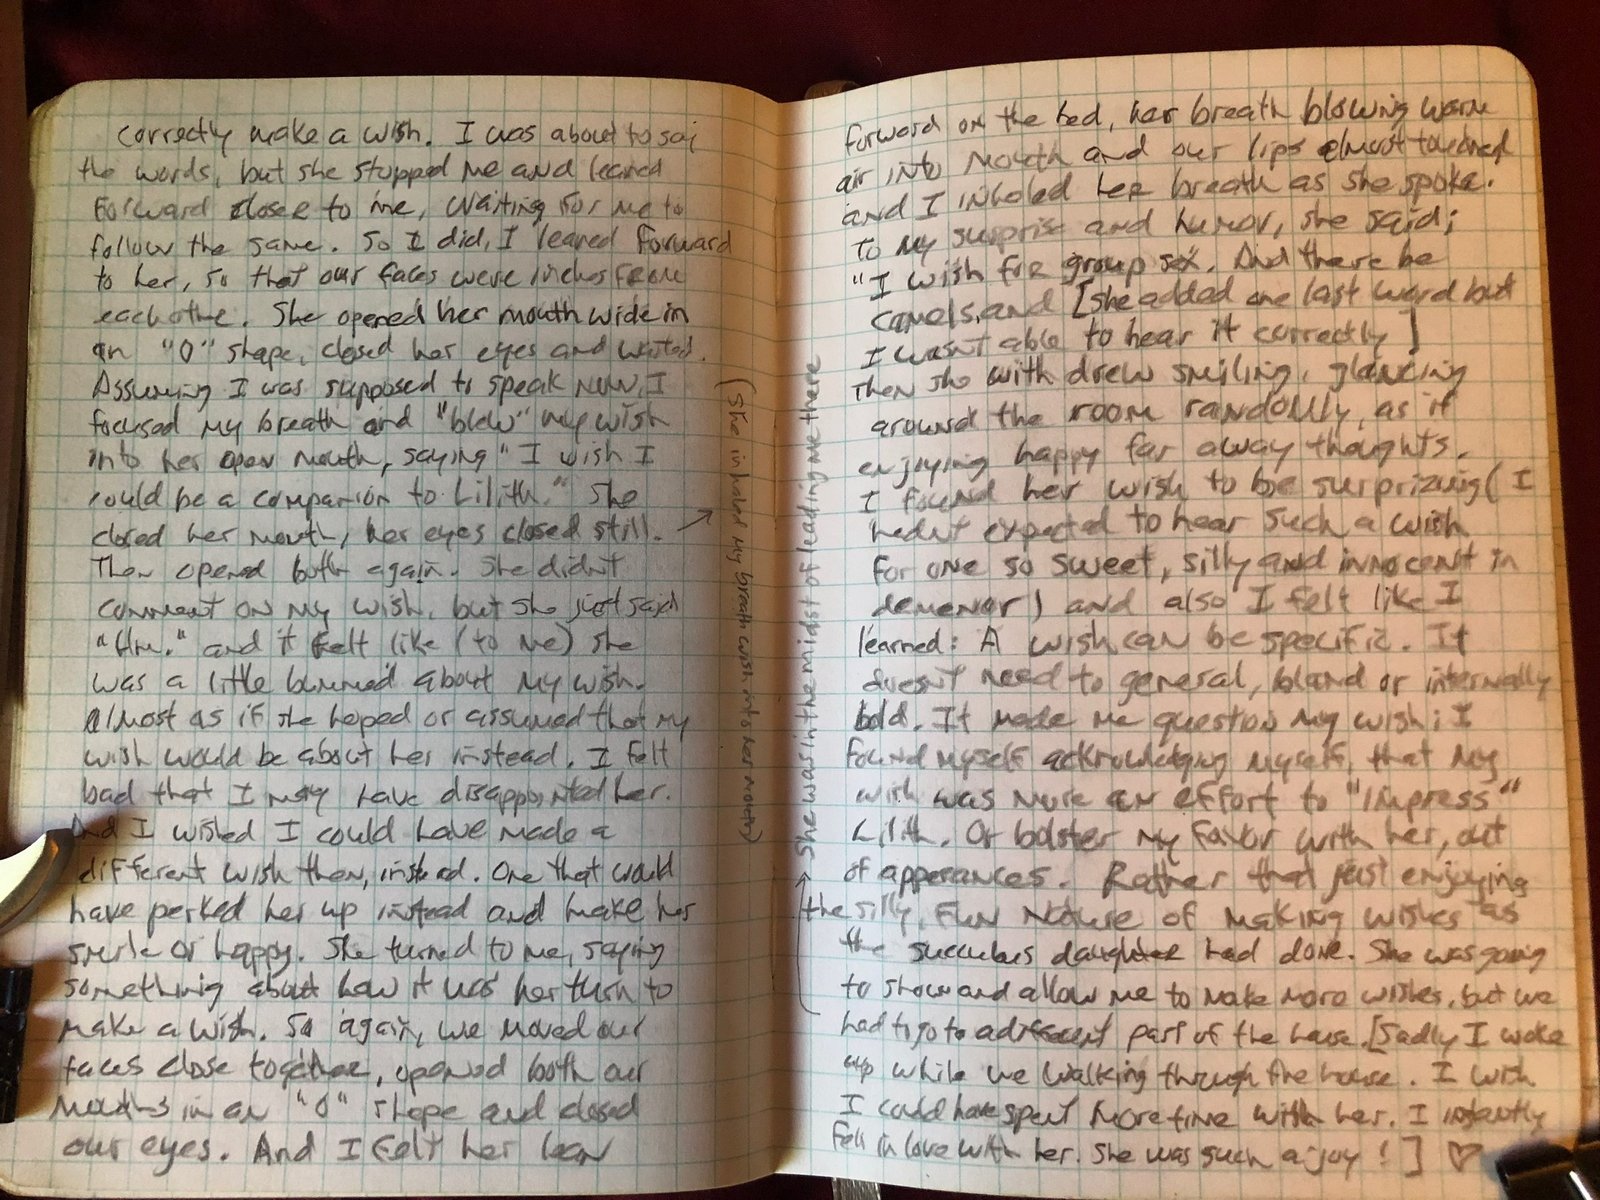 correctly make a wish. I was about to say
the words, but she stopped me and leaned
forward closer to me, waiting for me to
follow the same. So I did, I leaned forward
to her, so that our faces were inches from
eachother. She opened her mouth wide in
an "O" shape, closed her eyes and waited.
Assuming I was supposed to speak now, I
focused my breath and "blew" my wish
into her open mouth, saying "I wish I
could be a companion to Lilith." She
closed her mouth, her eyes closed still. →
Then opened both again. She didn't
comment on my wish, but she just said
"Hm." and it felt like (to me) she
was a little bummed about my wish.
almost as if she hoped or assumed that my
wish would be about her instead. I felt
bad that I may have disappointed her.
And I wished I could have made a
different wish then, instead. One that would
have perked her up instead and make her
smile or happy. She turned to me, saying
something about how it was her turn to
make a wish. So again, we moved our
faces close together, opened both our
mouths in an "O" shape and closed
our eyes. And I felt her lean
(she inhaled my breath wish into her mouth)
She was in the midst of leading me there
forward on the bed, her breath blowing warm
air into mouth and our lips almost touched
and I inhaled her breath as she spoke.
to my surprise and humor, she said;
"I wish for group sex. And there be
camels, and [she added one last word but
I wasn't able to hear it correctly]
Then she with drew smiling, glancing
around the room randomly, as if
enjoying happy far away thoughts.
I found her wish to be surprizing (I
hadn't expected to hear such a wish
for one so sweet, silly and innocent in
demenor) and also I felt like I
learned: A wish can be specific. It
doesn't need to general, bland or internally
bold. It made me question my wish; I
found myself acknowledging myself, that my
wish was more an effort to "impress"
Lilith. Or bolster my favor with her, out
of apperances. Rather that just enjoying
the silly, fun nature of making wishes as
the succubus daughter had done. She was going
to show and allow me to make more wishes, but we
had to go to a different part of the house. [Sadly I woke
up while we walking through the house. I wish
I could have spent more time with her. I instantly
fell in love with her. She was such a joy!] ♡